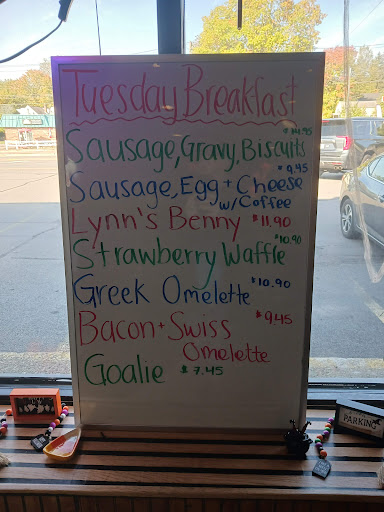 Tuesday Breakfast
Sausage, Gravy, Biscuits $10.95
Sausage, Egg + Cheese $9.45
w/Coffee
Lynn's Benny $11.90
Strawberry Waffle $10.90
Greek Omelette $10.90
Bacon + Swiss $9.45
Omelette
Goalie $7.45
PARKING